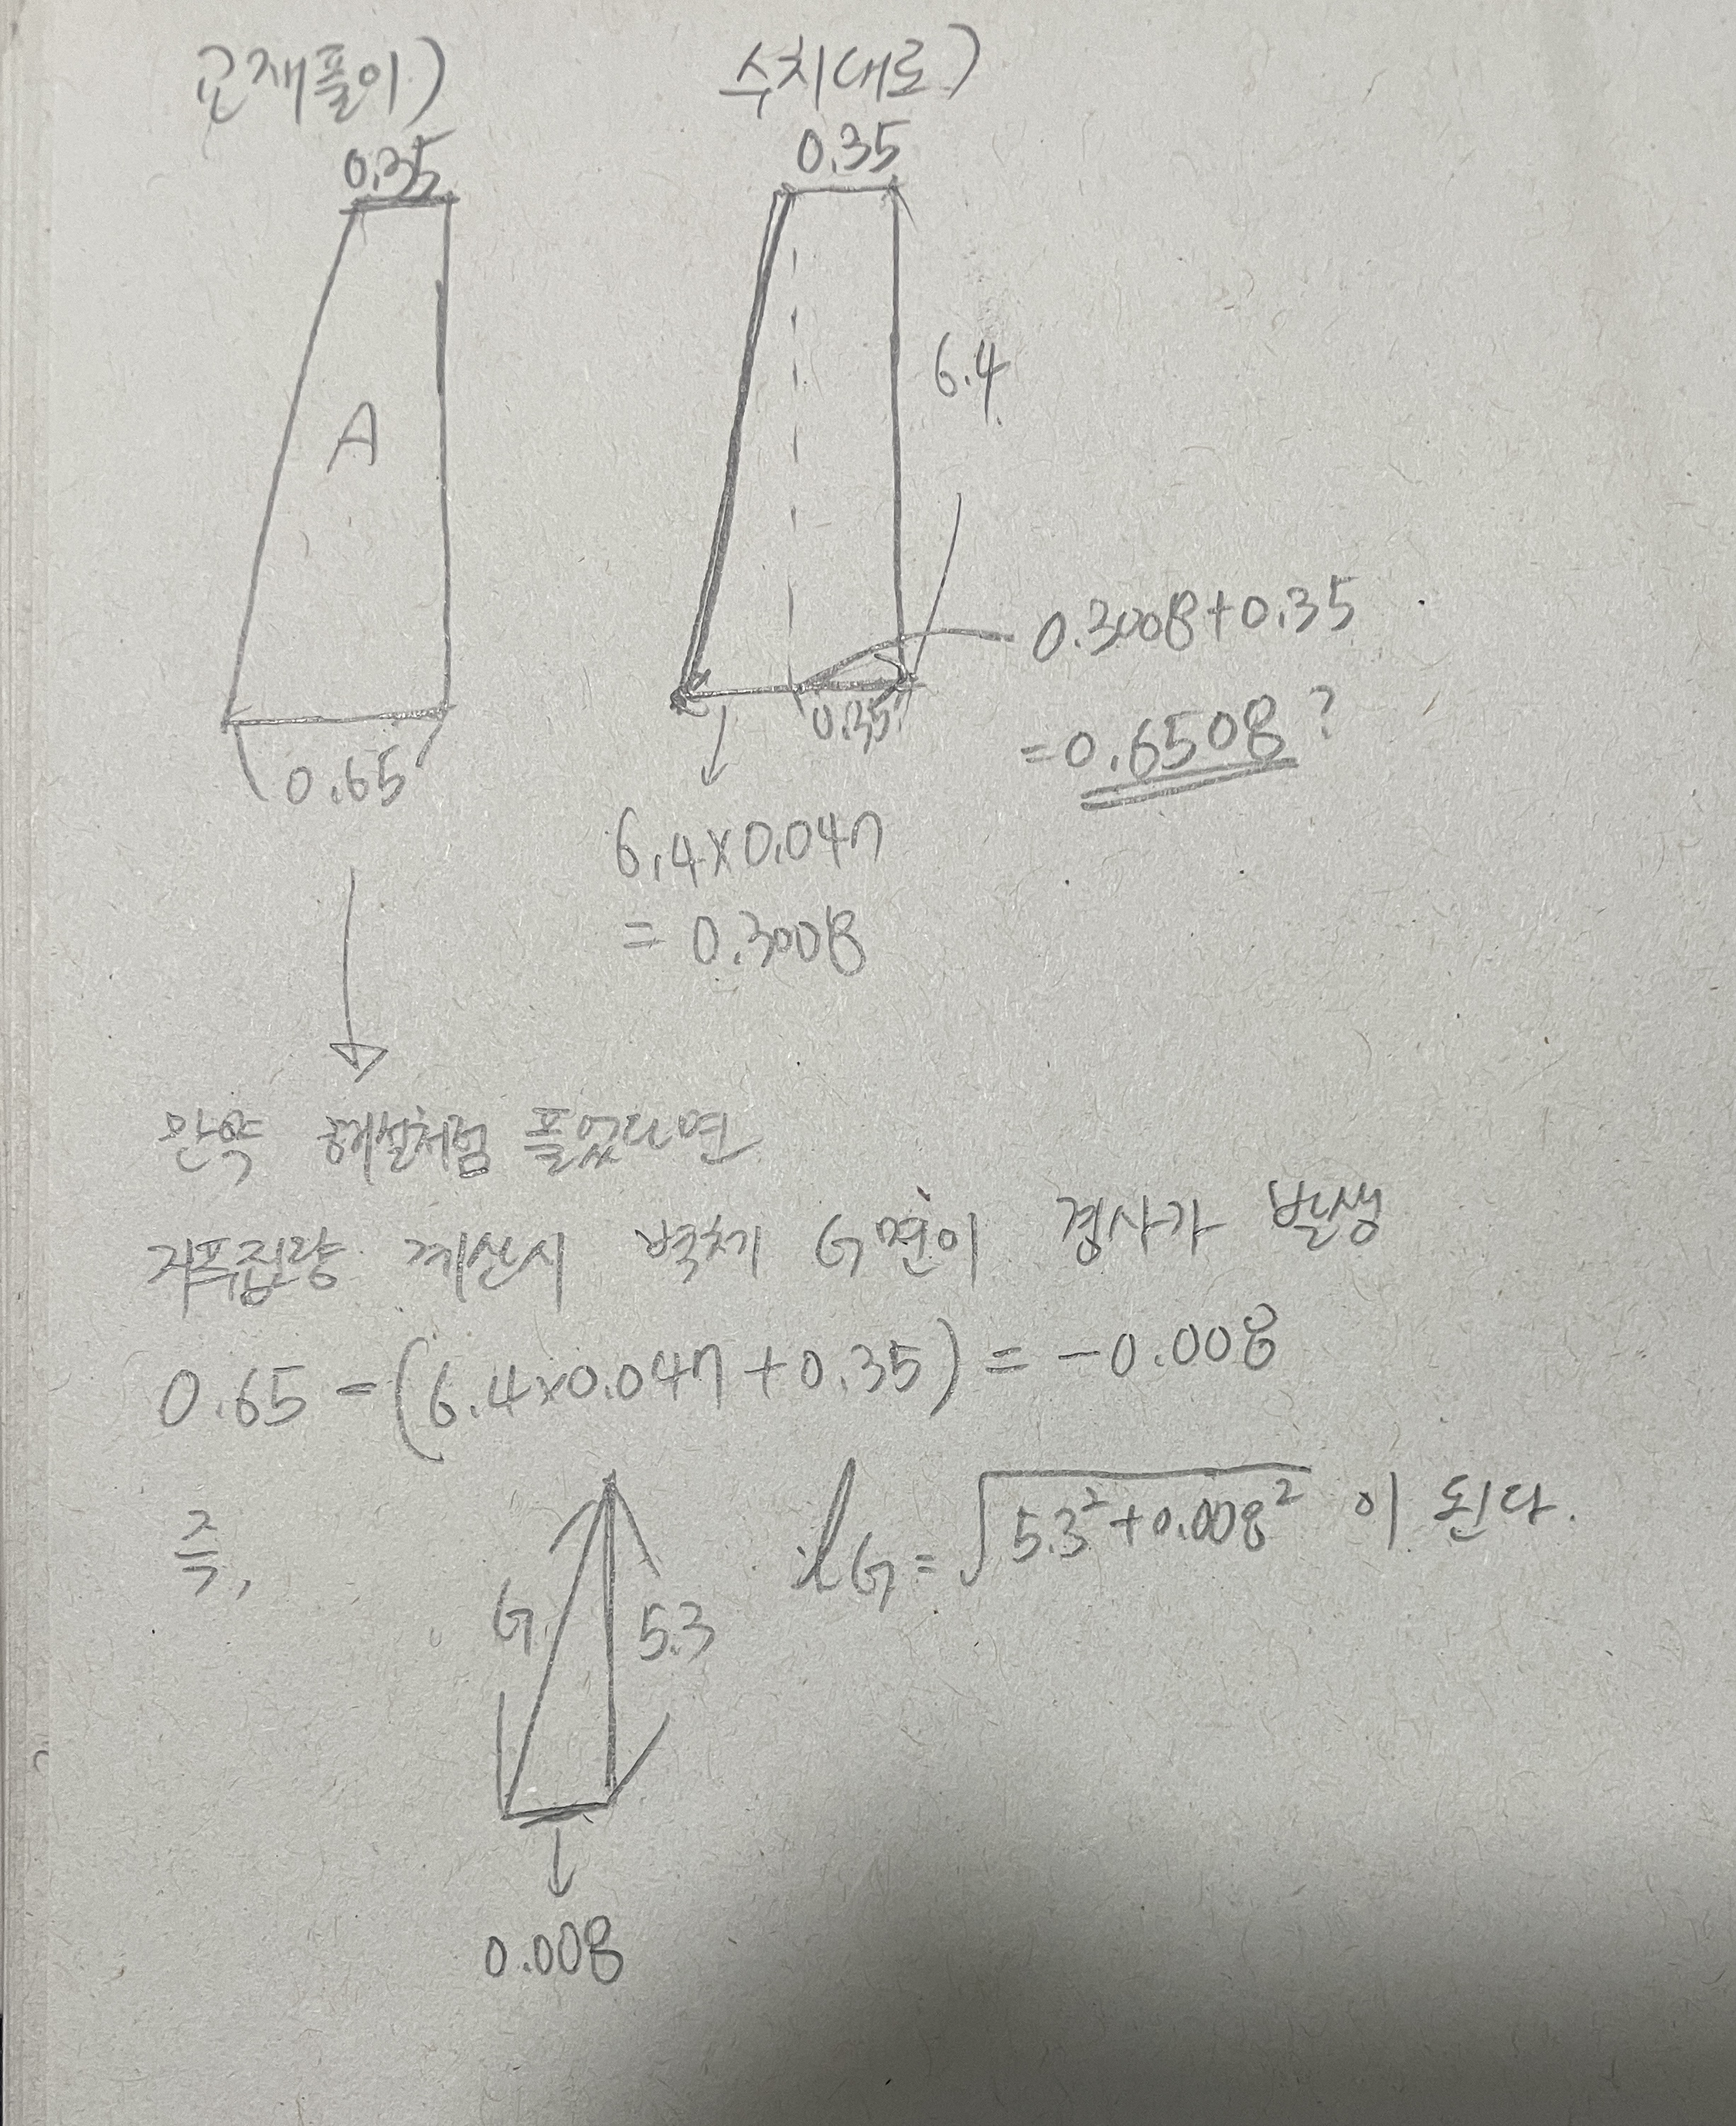 교재풀이)
수치대로)
0.35
0.35
A
6.4
0.65
0.35
0.3008+0.35
=0.6508?
6.4×0.047
= 0.3008
만약 해설처럼 풀었다면
거푸집량 계산시 벽체 G면이 경사가 발생
0.65-(6.4×0.047+0.35)=-0.008
즉,
G
5.3
ℓG=√5.3²+0.008² 이 된다.
0.008